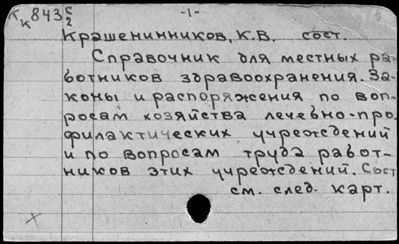 К к 843 с/2
-1-
Крашенинников, К.В. сост.
Справочник для местных ра-
ботников здравоохранения. За-
коны и распоряжения по воп-
росам хозяйства лечебно-про-
филактических учреждений
и по вопросам труда работ-
ников этих учреждений. Сост
см. след. карт.